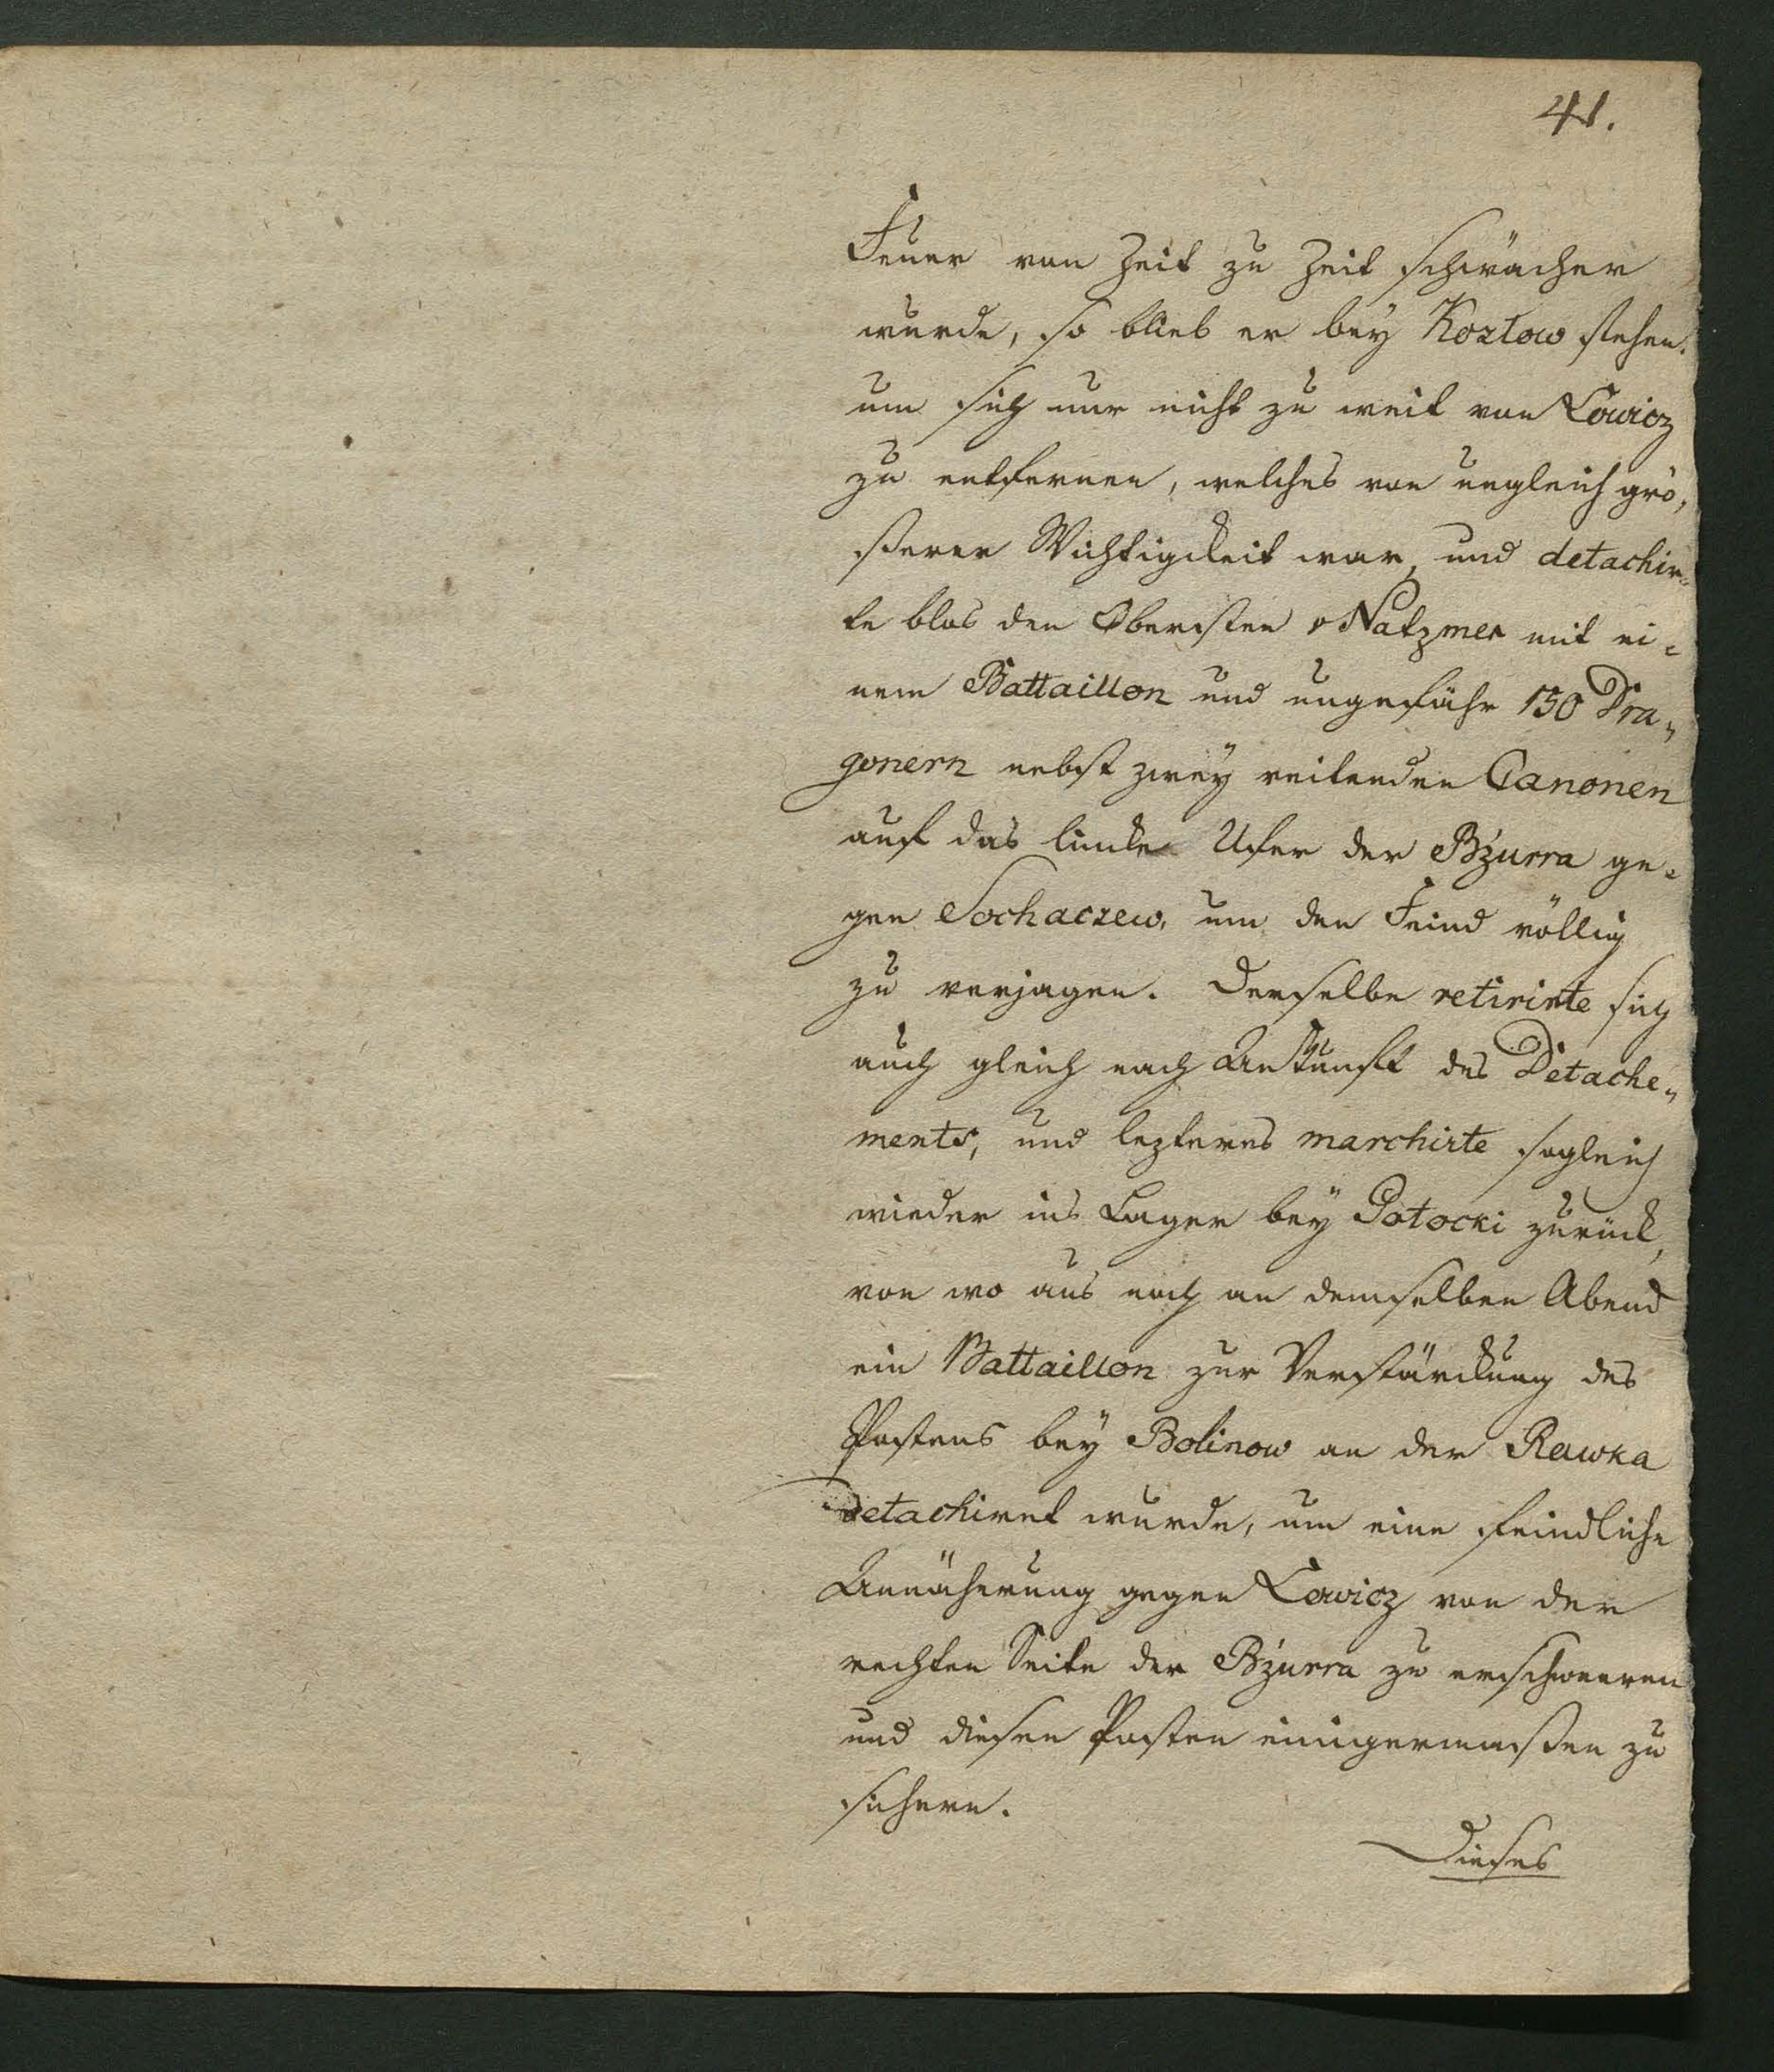 41.
Feuer von Zeit zu Zeit schwächer
wurde, so blieb er bey Kozłow stehen.
um sich nur nicht zu weit von Łowicz
zu entfernen, welches von ungleich grö,
ßerer Wichtigkeit war, und detachir=
te blos den Obersten v Natzmer mit ei=
nem Battaillon und ungefähr 150 Dra„
gonern nebst zwey reitenden Canonen
auf das linke Ufer der Bżurra ge=
gen Sochaczew, um den Feind völlig
zu verjagen. Derselbe retirirte sich
auch gleich nach Ankunft des Detache„
ments, und lezteres marchirte sogleich
wieder ins Lager bey Potocki zurück,
von wo aus noch an demselben Abend
ein Battaillon zur Verstärckung des
Postens bey Bolinow an der Rawka
detachiret wurde, um eine feindliche
Annäherung gegen Łowicz von der
rechten Seite der Bżurra zu erschweeren
und diesen Posten einigermaßen zu
sichern.
Dieses